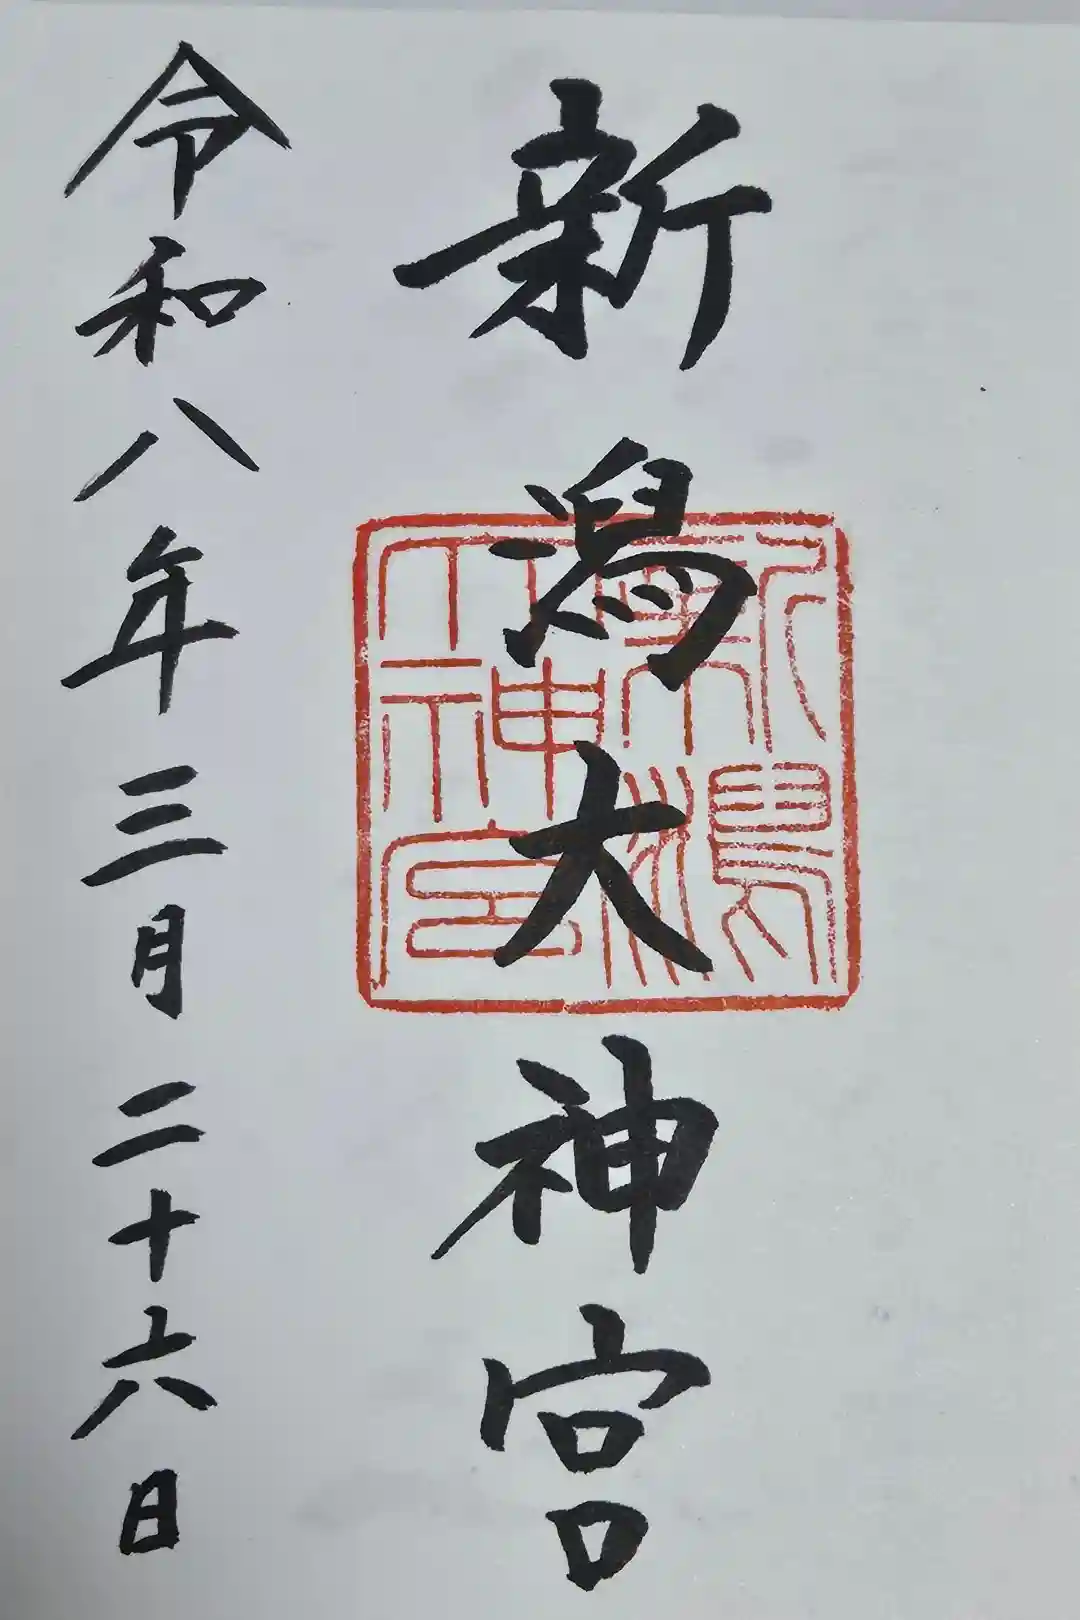 新潟大神宮
令和八年三月二十六日
新潟大神宮